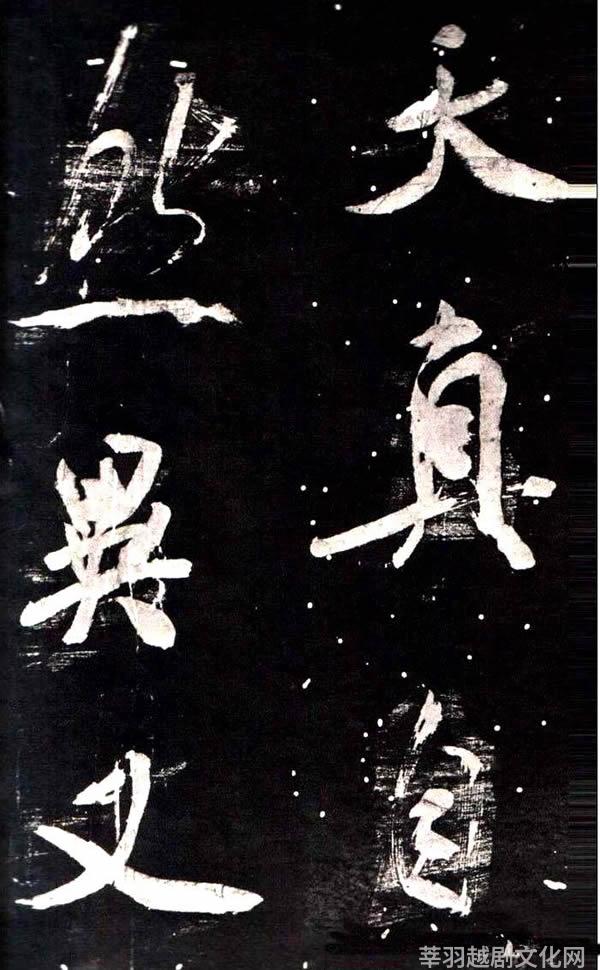 天真自
然異又
莘羽越剧文化网